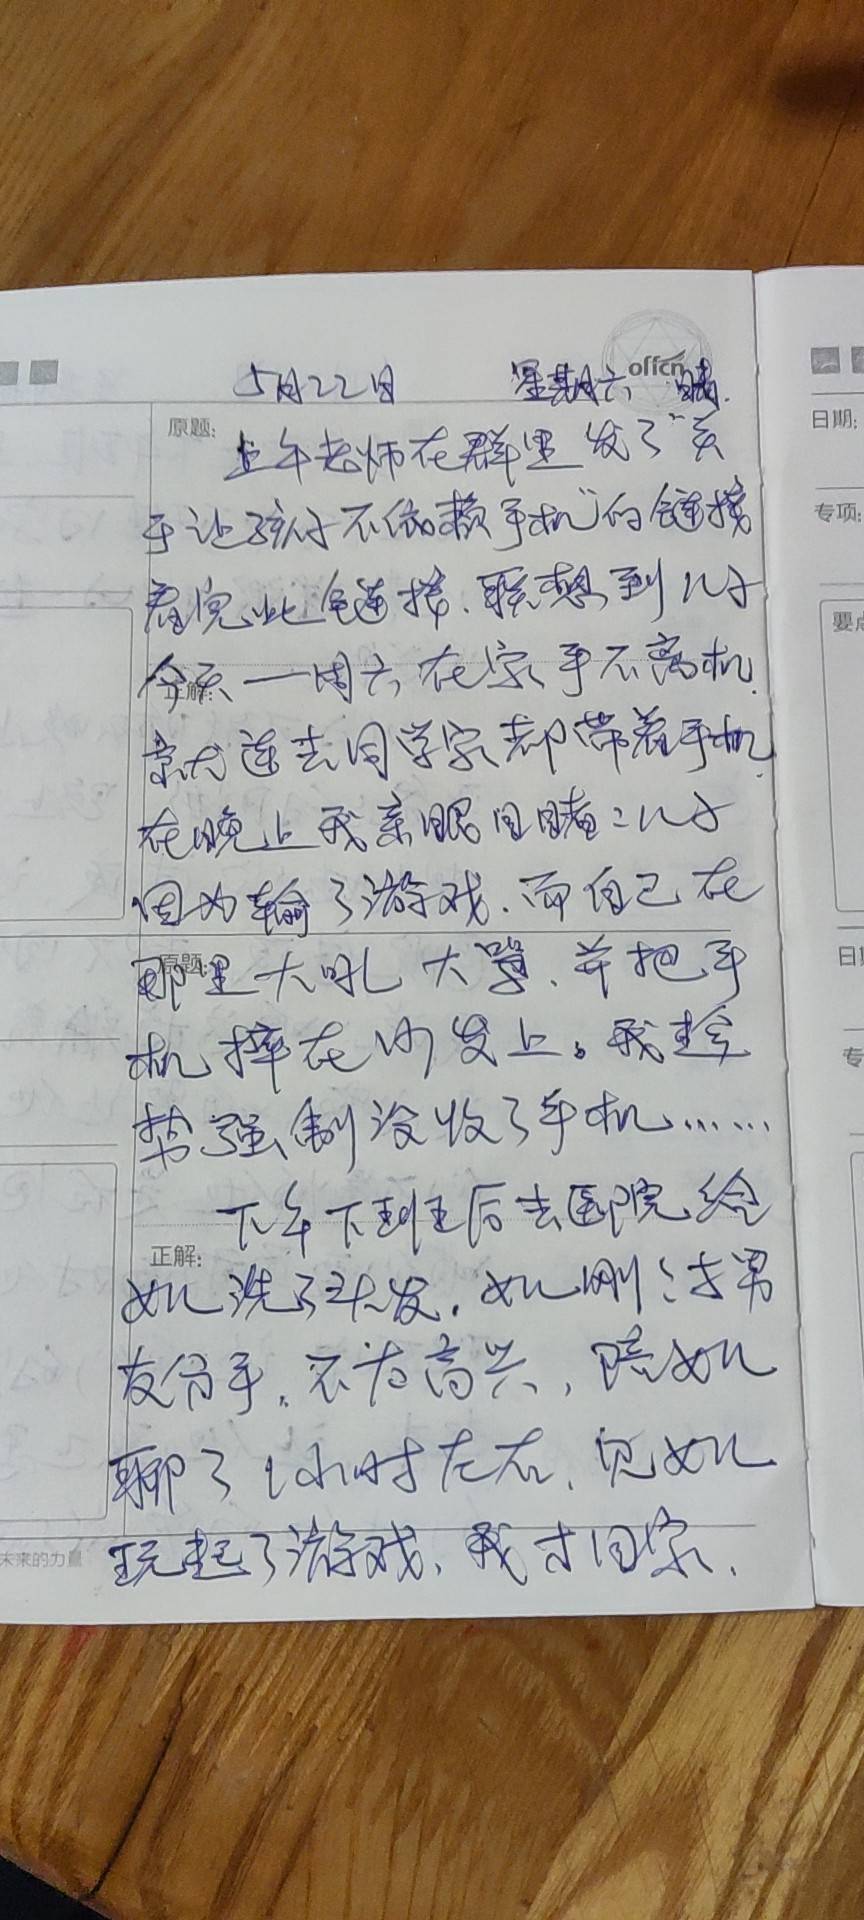 offcn
5月22日 星期六 晴.
原题:
上午老师在群里发了"关
于让孩子不依赖手机"的链接
看完此链接、联想到儿子
今天一周六在家手不离机.
正解:
就连去同学家都带着手机.
在晚上我亲眼目睹:儿子
因为输了游戏、而自己在
原题:
那里大吼大嚷、并把手
机摔在沙发上。我趁
势强制没收了手机……
下午下到班后去医院给
正解:
她洗了头发.她刚刚才男
友分手.不太高兴,陪她
聊了1小时左右、见她
玩起了游戏、我才回家.
未来的力量
日期:
专项:
要点
日期
专